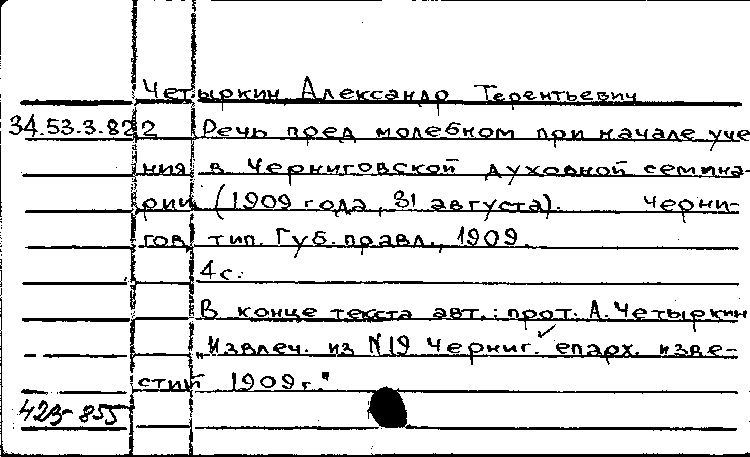 Четыркин, Александр Терентьевич
34.53.3.822 Речь пред молебном при начале уче
ния в Черниговской духовной семина-
рии (1909 года, 31 августа). Черни-
гов, тип. Губ. правл., 1909.
4 с.
В конце текста авт.: прот. А. Четыркин
"Извлеч. из N 19 Черниг. епарх. изве-
стий 1909 г."
423-855